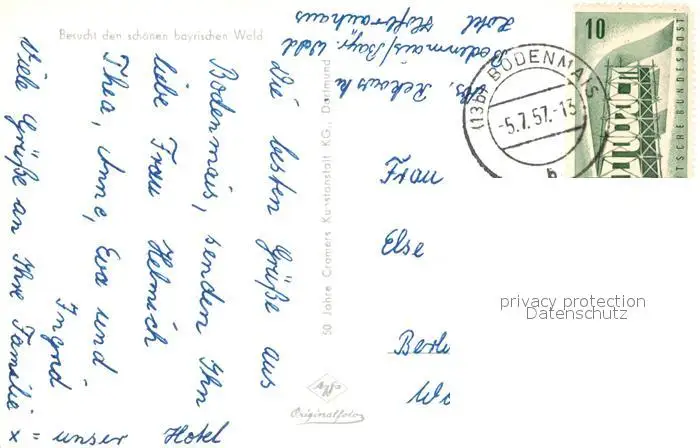 Besucht den schönen bayrischen Wald
Die besten Grüße aus
Bodenmais, senden Ihn
liebe Frau Helmich
Thea, Anne, Eva und
Ingrid
Viele Grüße an Ihre Familie
x = unser Hotel
50 Jahre Cramers Kunstanstalt KG., Dortmund
Agfa
Originalfoto
Bodenmais/Bayr. Wald
Hotel Hofbräuhaus
(13b) BODENMAIS
-5.7.57.-13
b
10
DEUTSCHE BUNDESPOST
Frau
Else
Berli
privacy protection
Datenschutz